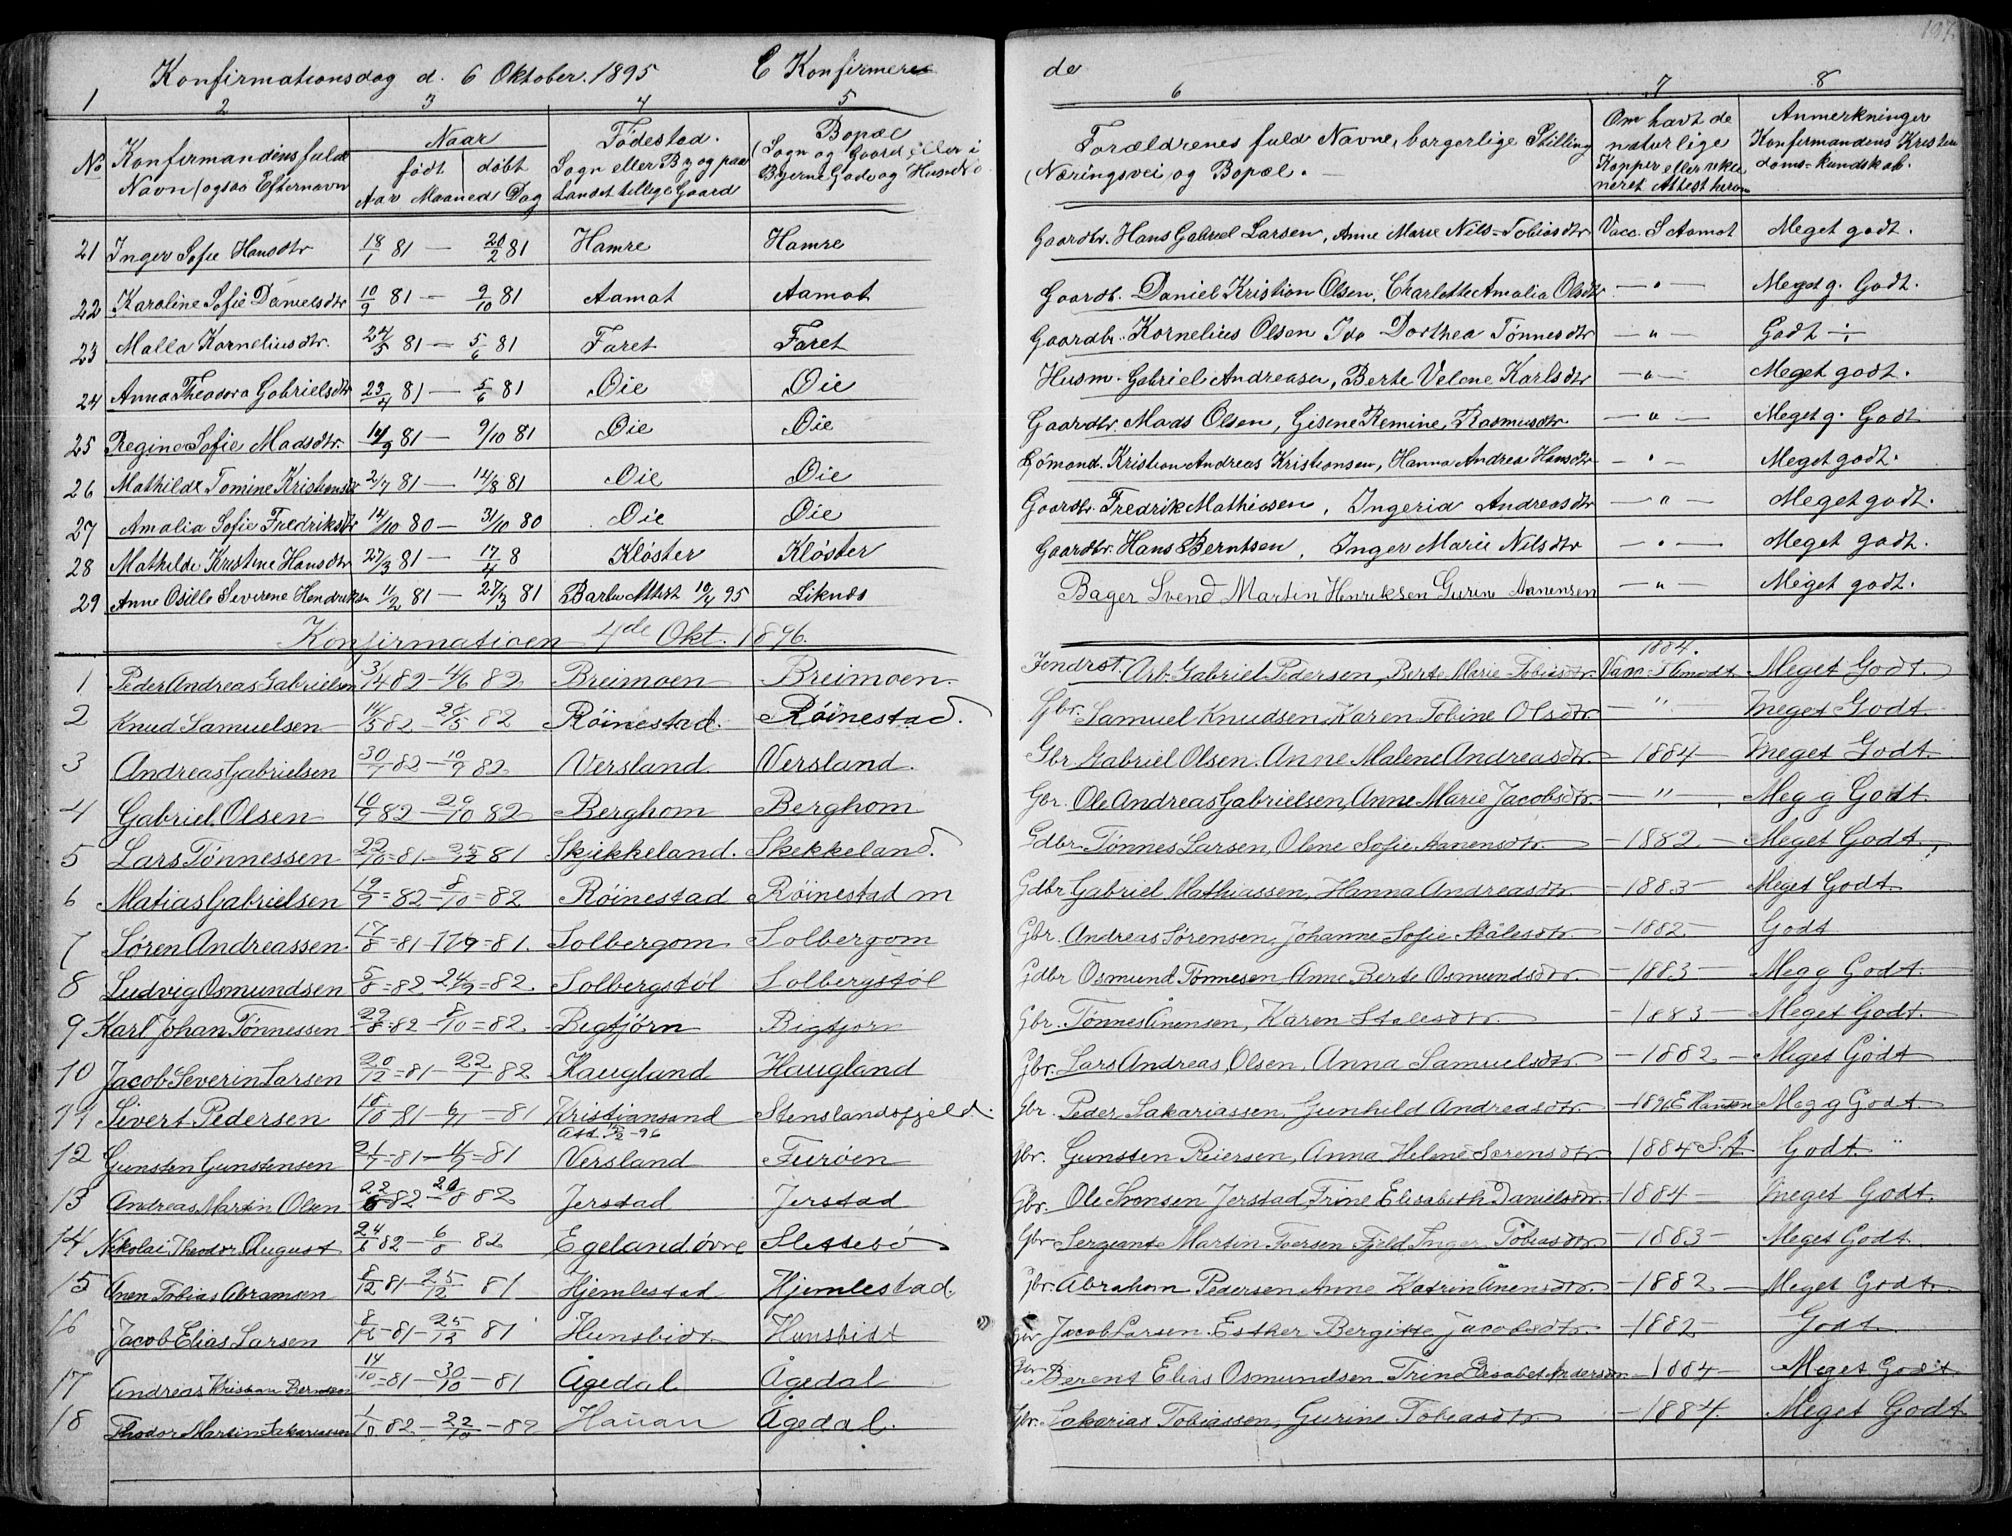 197.
Konfirmationsdag d. 6 Oktober. 1895 C Konfirmerede
1 2 3 4 5 6 7 8
No Konfirmandens fulde Navn (ogsaa Efternavn Naar født døbt Aar Maaned Dag Fødestad. Sogn eller By og paa Landet tillige Gaard Bopæl (Sogn og Gaard, eller i Byerne Gade og Huus No Forældrenes fulde Navne, borgerlige Stilling (Næringsvei og Bopæl. Om havt de naturlige Kopper eller vakcineret Attest herom Anmerkninger Konfirmandens Kristendoms-kundskab.
21 Inger Sofie Hansdtr 18/1 81 — 20/2 81 Hamre Hamre Gaardbr. Hans Gabriel Larsen, Anne Marie Nils-Tobiasdtr Vacc. S Aamot Meget godt.
22 Karoline Sofie Danielsdtr 10/9 81 — 9/10 81 Aamot Aamot Gaardb. Daniel Kristian Olsen, Charlotte Amalia Olsdtr — " — Meget g. Godt.
23 Malla Korneliusdtr. 22/5 81 — 5/6 81 Faret Faret Gaardbr. Kornelius Olsen Ida Dorthea Tønnesdtr — " — Godt ÷
24 Anna Theodora Gabrielsdtr 23/4 81 — 5/6 81 Øie Øie Husm. Gabriel Andreasen, Berte Velene Karlsdtr — " — Meget godt.
25 Regine Sofie Madsdtr. 14/9 81 — 9/10 81 Øie Øie Gaardbr. Mads Olsen, Gisene Remine Rasmusdtr — " — Meget g. Godt
26 Mathilde Tomine Kristiansdtr 2/7 81 — 14/8 81 Øie Øie Sømand. Kristian Andreas Kristiansen, Hanna Andrea Hansdtr — " — Meget godt.
27 Amalia Sofie Fredriksdtr 14/10 80 — 31/10 80 Øie Øie Gaardbr. Fredrik Mathiasen, Ingeria Andreasdtr — " — Meget godt.
28 Mathilde Kristine Hansdtr 27/3 81 — 17/4 8 Kløster Kløster Gaardbr. Hans Berntsen, Inger Marie Nilsdtr — " — Meget godt.
29 Anne Osille Severene Hendriksen 11/2 81 — 27/3 81 Barbu Attest 10/4 95 Liknes Bager Svend Martin Henriksen Gurine Aanensen — " — Meget godt.
Konfirmationen 4de Okt. 1896.
1 Peder Andreas Gabrielsen 3/4 82 — 4/6 82 Breimoen Breimoen. Jendrst. Arb. Gabriel Pedersen, Berte Marie Tobiasdtr. 1884. Vacc. S Aamodt Meget Godt.
2 Knud Samuelsen 14/5 82 — 28/5 82 Røinestad. Røinestad. Gbr. Samuel Knudsen, Karen Tobine Olsdtr — " Meget Godt
3 Andreas Gabrielsen 30/7 82 — 10/9 82 Versland. Versland. Gbr Gabriel Olsen. Anne Malene Andreasdtr — 1884 — Meget Godt
4 Gabriel. Olsen 10/9 82 — 29/10 82 Berghom Berghom Gbr. Ole Andreas Gabrielsen, Anne Marie Jacobsdtr — " — Meg g Godt
5 Lars Tønnessen 22/10 = 81 — 25/12 81 Skjekkeland. Skekkeland. Gdbr Tønnes Larsen, Olene Sofie Aanensdtr — 1882 — Meget Godt
6 Matias Gabrielsen 19/9 = 82 — 8/10 = 82 Røinestad Røinestad m Gdbr Gabriel Mathiassen, Hanna Andreasdtr — 1883 — Meget Godt
7 Søren Andreassen. 17/8 = 81 — = 81. Solbergom Solbergom Gbr. Andreas Sørensen, Johanne Sofie Stålesdtr. — 1882 — Godt
8 Ludvig Osmundsen 5/8 = 82 24/9 = 82. Solbergstøl Solbergstøl Gdbr Osmund Tønnesen Anne Berte Osmundsdtr — 1883 — Meg g Godt.
9 Karl Johan Tønnessen 22/8 = 82 — 8/10 = 82. Bigtjørn Bigtjorn Gbr. Tønnes Ånensen, Karen Stalesdtr. — 1883 — Meget Godt.
10 Jacob Severin Larsen 20/12 = 81 — 22/1 82 Hauglund Haugland Gbr. Lars Andreas, Olsen, Anna Samuelsdtr. — 1882 — Meget Godt
11 Sivert Pedersen /10 81 — 6/11 — 81 Kristiansand Att. 15/2 -96 Stenslandsfjeld. Gbr. Peder Sakariassen, Gunhild Andreasdtr. — 1896 E Hansen Meg g Godt.
12 Gunsten Gunstensen 21/7 = 81 — 4/9 = 81 Versland Furøen Gbr. Gunsten Reiersen, Anna Helene Sørensdtr. — 1884 S. A Godt "
13 Andreas Martin Olsen 22/6 82 — 20/8 82 Jerstad Jerstad Gbr. Ole Svensen Jerstad, Trine Elisabeth Danielsdtr. — 1884 — Meget Godt.
14 Nikolai Theodor August 24/6 82 — 6/8 82 Egeland øvre Slettebø Gbr Sergeante Martin Toersen Fjeld Inger Tobiasdtr — 1883 — Meget Godt.
15 Ånen Tobias Abramsen 8/12 81 — 25/12 81 Hjemlestad Hjemlestad. Gbr. Abraham Pedersen Anne Katrin Ånensdtr. — 1882 — Meget Godt.
16 Jacob Elias Larsen 8/12 — 81 — 25/12 81 Hunsbidt Hunsbidt Gbr Jacob Larsen. Esther Bergitte Jacobsdtr. — 1882 — Godt
17 Andreas Kristian Berntsen 14/10 = 81 — 30/10 — 81 Ågedal Ågedal Gbr Berent Elias Osmundsen Trine Elisabet Andersdtr — 1884 — Meget Godt
18 Theodor Martin Sakariassen 1/10. 82 — 22/10 — 82 Hauan Ågedal. Gbr. Sakarias Tobiassen, Gurine Tobiasdtr — 1884. Meget Godt